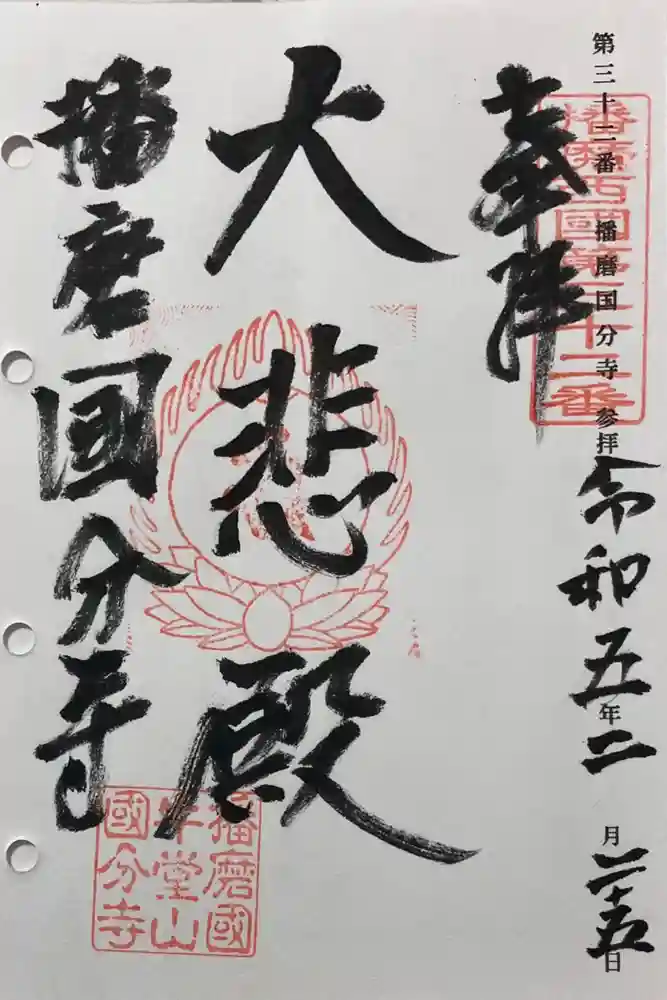 第三十二番 播磨国分寺 参拝
令和五年二月二十五日
播磨西國第三十二番
奉拝
大悲殿
播磨國分寺
播磨國
牛堂山
國分寺